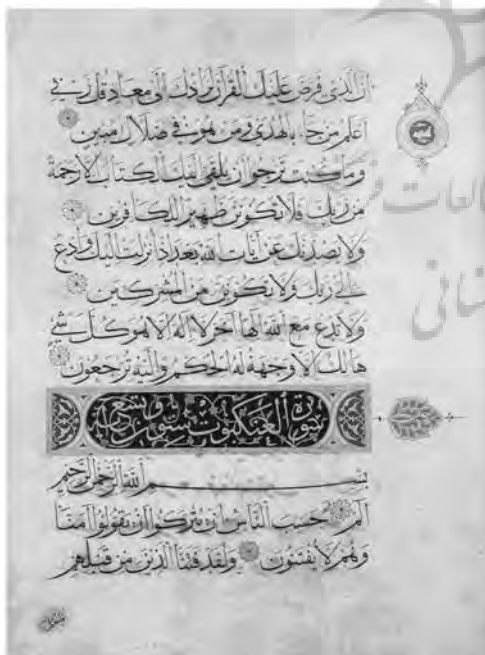 ان الذي فرض عليك القرآن لرادك الى معاد قل ربي
اعلم من جاء بالهدى ومن هو في ضلال مبين
وما كنت ترجوا ان يلقى اليك الكتاب الا رحمة
من ربك فلا تكونن ظهيرا للكافرين
ولا يصدنك عن آيات الله بعد اذ انزلت اليك وادع
الى ربك ولا تكونن من المشركين
ولا تدع مع الله الها آخر لا اله الا هو كل شيء
هالك الا وجهه له الحكم واليه ترجعون
سورة العنكبوت تسع وستون
بسم الله الرحمن الرحيم
الم حسب الناس ان يتركوا ان يقولوا آمنا
وهم لا يفتنون ولقد فتنا الذين من قبلهم